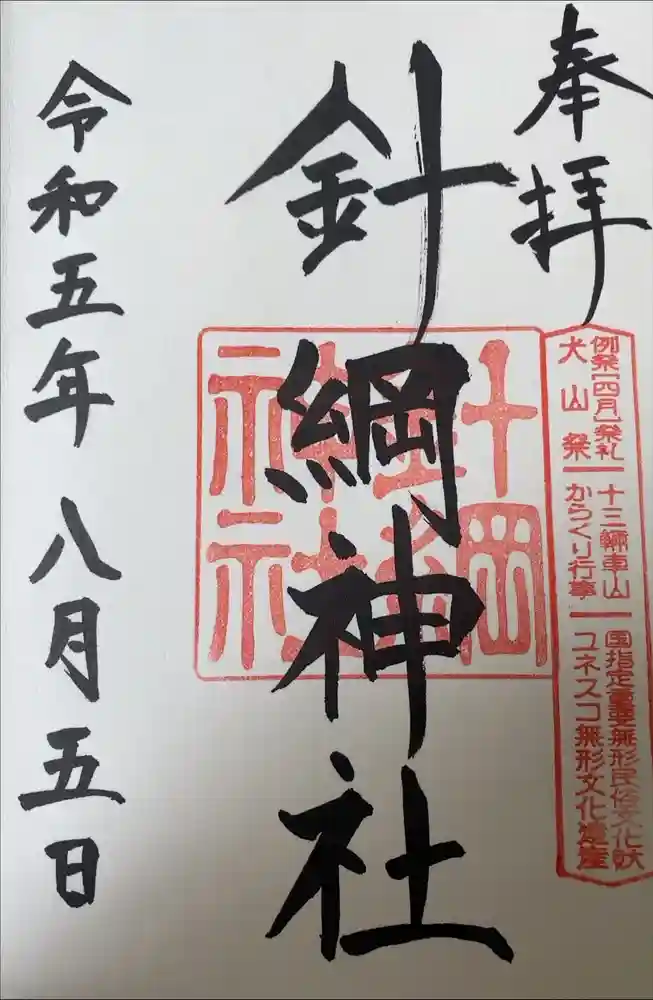 奉拝
例祭［四月］祭礼
犬山祭
十三輛車山
からくり行事
国指定重要無形民俗文化財
ユネスコ無形文化遺産
針綱神社
針綱神社
令和五年八月五日